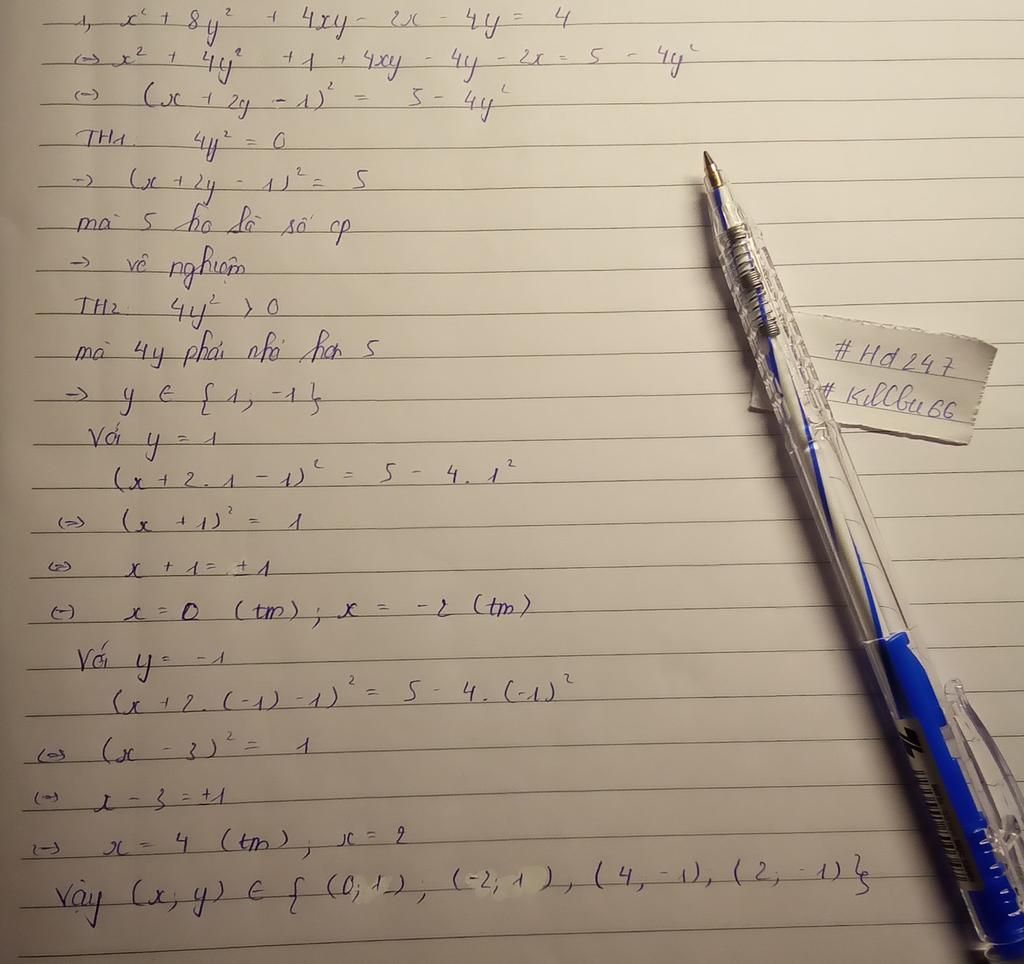 1, x² + 8y² + 4xy - 2x - 4y = 4
(=) x² + 4y² + 1 + 4xy - 4y - 2x = 5 - 4y²
(=) (x + 2y - 1)² = 5 - 4y²
TH1: 4y² = 0
→ (x + 2y - 1)² = 5
mà 5 ko là số cp
→ vô nghiệm
TH2: 4y² > 0
mà 4y phải nhỏ hơn 5
→ y ∈ {1; -1}
Với y = 1
(x + 2.1 - 1)² = 5 - 4.1²
(=) (x + 1)² = 1
(=) x + 1 = ±1
(=) x = 0 (tm); x = -2 (tm)
Với y = -1
(x + 2.(-1) - 1)² = 5 - 4.(-1)²
(=) (x - 3)² = 1
(=) x - 3 = ±1
(=) x = 4 (tm); x = 2
Vậy (x; y) ∈ {(0; 1); (-2; 1), (4, -1), (2; -1)}
#Hd247
#killbu66